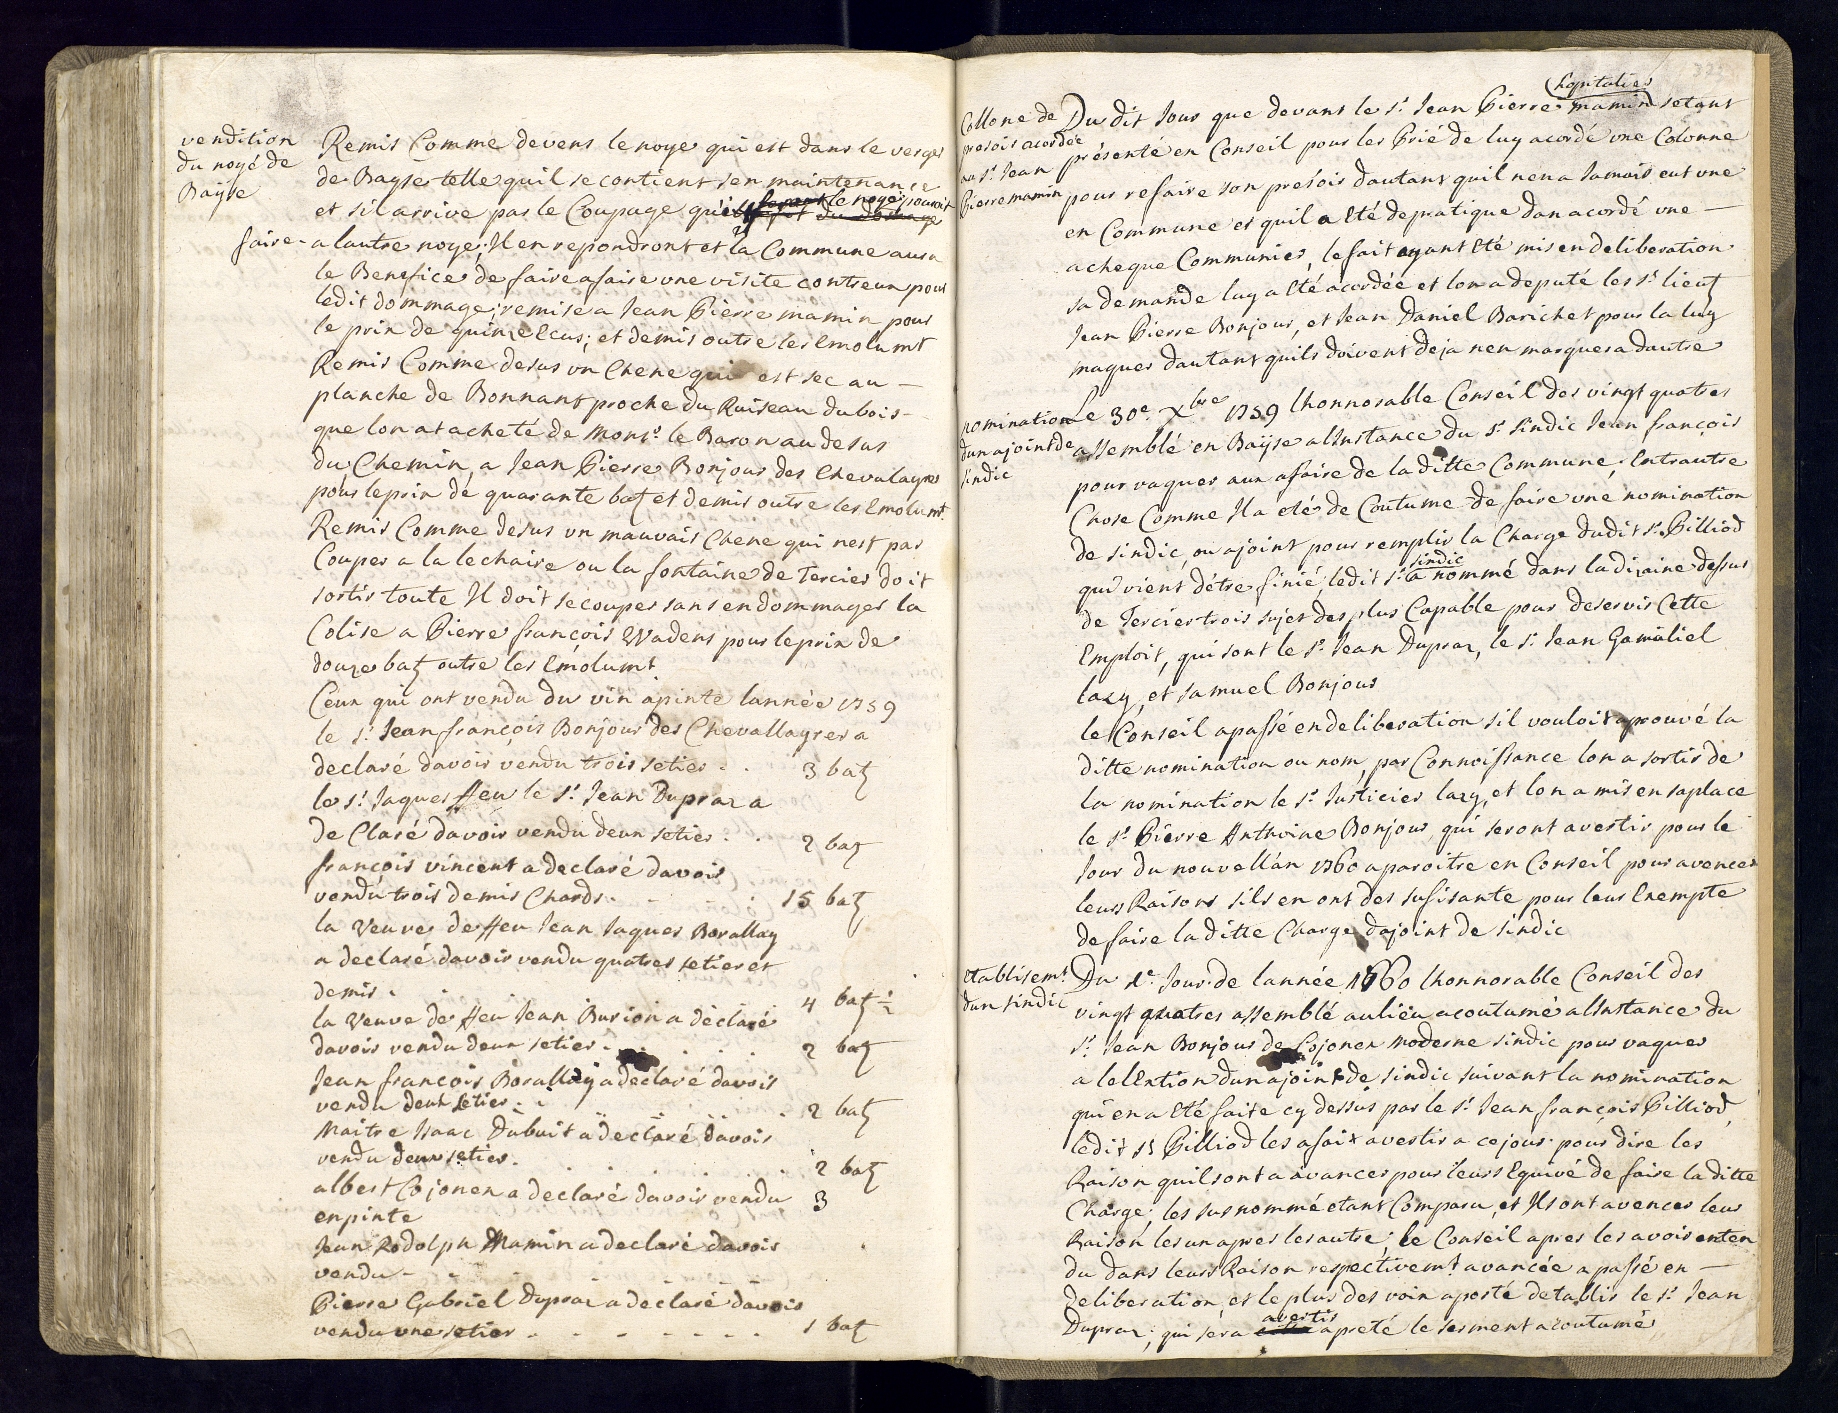 vendition
du noyé de
Bayse
Remis Comme devens le noyer qui est dans le verger
de Bayse telle quil se contient sen maintenance
et sil arrive par le Coupage qu'il le noyé pouroit
faire a lautre noye; Il en repondront et la Commune aura
le Benefice de faire afaire une visite contreux pour
ledit dommage; remise a Jean Pierre mamin pour
le prix de quinze Ecus; et demis outre les Emolumt
Remis Comme desus un Chene qui est sec au -
planche de Bonnant proche du Ruiseau du bois -
que lon at acheté de Monsr. le Baron au desus
du Chemin, a Jean Pierre Bonjour des Chevalayres
pour le prix de quarante batz et demis outre les Emolumt.
Remis Comme desus un mauvais Chene qui nest pas
Couper a la lechaire ou la fontaine de Tercier doit
sortir toute Il doit se couper sans endommager la
Colise a Pierre françois Wadens pour le prix de
douze batz outre les Emolumt.
Ceux qui ont vendu du vin apinte lannée 1759
le Sr. Jean françois Bonjour des Chevallayres a
declaré davoir vendu trois setier . . 3 batz
le Sr. Jaques ffeu le Sr. Jean Dupraz a
de Claré davoir vendu deux setier . . 2 batz
françois vincent a declaré davoir
vendu trois demis Chards . - - . 15 batz
la Veuve de ffeu Jean Jaques Borallay
a declaré davoir vendu quatres setier et
demis . . . . . . 4 batz ½
la Veuve de ffeu Jean Burion a declaré
davoir vendu deux setier . . . . 2 batz
Jean françois Borallay a declaré davoir
vendu deux setier . . . . 2 batz
Maitre Isaac Dubuit a declaré davoir
vendu deux setier . . . . 2 batz
albert Cojonex a declaré davoir vendu 3
enpinte
Jean Rodolph Mamin a declaré davoir
vendu - -
Pierre Gabriel Dupraz a declaré davoir
vendu une setier - - - - - - 1 batz
Collone de
presois acordée
au Sr. Jean
Pierre mamin
hopitalier
Du dit Jour que devant le Sr. Jean Pierre mamin setant
présenté en Conseil pour les Prié de luy acordé une Colonne
pour refaire son presois dautant quil nen a Jamais eut une
en Commune et quil a Eté depratique dan acordé une -
a cheque Communier, le fait ayant Eté mis en deliberation
sa demande luy a Eté acordée et lon a deputé les Sr. lieutz
Jean Pierre Bonjour, et Jean Daniel Barichet pour la luy
maquer dautant quils doivent deja nen marquer a dautre
nomination
dun ajoint de
sindic
Le 30e. Xbre 1759 lhonnorable Conseil des vingt quatres
assemblé en Baÿse alInstance du Sr. Sindic Jean françois
pour vaquer aux afaire de la ditte Commune; Entrautre
Chose Comme Il a eté de Coutume de faire une nomination
de sindic, ou ajoint pour remplir la Charge dudit Sr. Pilliod
sindic
qui vient détre finié, ledit Sr. a nommé dans la dizaine dessus
de Tercier trois sujet des plus Capable pour deservir Cette
Emploit, qui sont le Sr. Jean Dupraz, le Sr. Jean Gamaliel
lazy, et Samuel Bonjour
le Conseil a passé en deliberation sil vouloit aprouvé la
ditte nomination ou non, par Connoissance lon a sortir de
la nomination le Sr. Justicier lazy, et lon a mis en saplace
le Sr. Pierre Anthoine Bonjour, qui seront avertir pour le
Jour du nouvell'an 1760 a paroitre en Conseil pour avencer
leurs Raisons sils en ont des sufisante pour leur Exempte
de faire la ditte Charge dajoint de sindic
Etablisemt
dun sindic
Du 1e. Jour de lannée 1760 lhonnorable Conseil des
vingt quatres assemblé au lieu acoutumé alInstance du
Sr. Jean Bonjour de Cojonex moderne sindic pour vaquer
a lelExtion dun ajoint de sindic suivant la nomination
qui en a Eté faite cy dessus par le Sr. Jean françois Pilliod,
ledit Sr Pilliod les afait avertir a ce jour pour dire les
Raison quil sont a avancer pour leurs Equivé de faire la ditte
Charge; les sus nommé étant Comparu, et Ils ont avencer leur
Raison les un apres les autre; le Conseil apres les avoir enten
du dans leurs Raison respectivemt. avancée a passé en -
deliberation, et le plus des voix a porté detablir le Sr. Jean
avertir
Dupraz; qui sera a preté le serment acoutumé